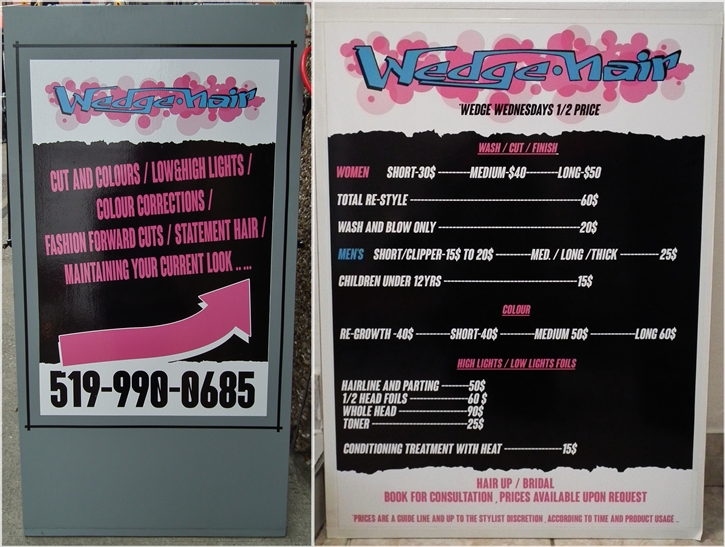 Wedge·Hair
CUT AND COLOURS / LOW&HIGH LIGHTS /
COLOUR CORRECTIONS /
FASHION FORWARD CUTS / STATEMENT HAIR /
MAINTAINING YOUR CURRENT LOOK .. ...
519-990-0685
Wedge·Hair
*WEDGE WEDNESDAYS 1/2 PRICE
WASH / CUT / FINISH
WOMEN SHORT-30$ --------MEDIUM-$40--------LONG-$50
TOTAL RE-STYLE ----------------------------------------60$
WASH AND BLOW ONLY ---------------------------------20$
MEN'S SHORT/CLIPPER-15$ TO 20$ ---------MED. / LONG /THICK ----------25$
CHILDREN UNDER 12YRS --------------------------------15$
COLOUR
RE-GROWTH -40$ --------SHORT-40$ --------MEDIUM 50$----------LONG 60$
HIGH LIGHTS / LOW LIGHTS FOILS
HAIRLINE AND PARTING ------50$
1/2 HEAD FOILS --------------60 $
WHOLE HEAD ----------------90$
TONER -----------------------25$
CONDITIONING TREATMENT WITH HEAT --------------15$
HAIR UP / BRIDAL
BOOK FOR CONSULTATION , PRICES AVAILABLE UPON REQUEST
*PRICES ARE A GUIDE LINE AND UP TO THE STYLIST DISCRETION , ACCORDING TO TIME AND PRODUCT USAGE ..